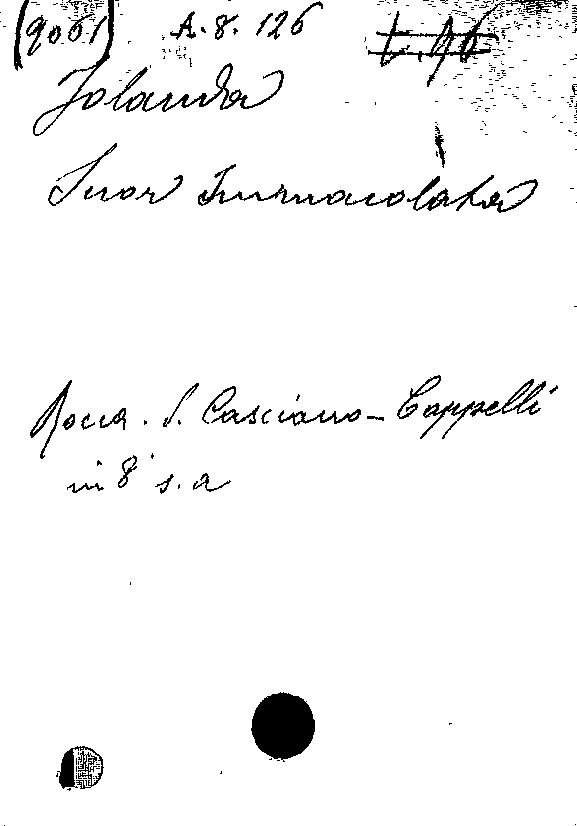 (9061) A.8.126
Jolanda
Suor Immacolata
Rocca S. Casciano - Cappelli
in 8° s.a